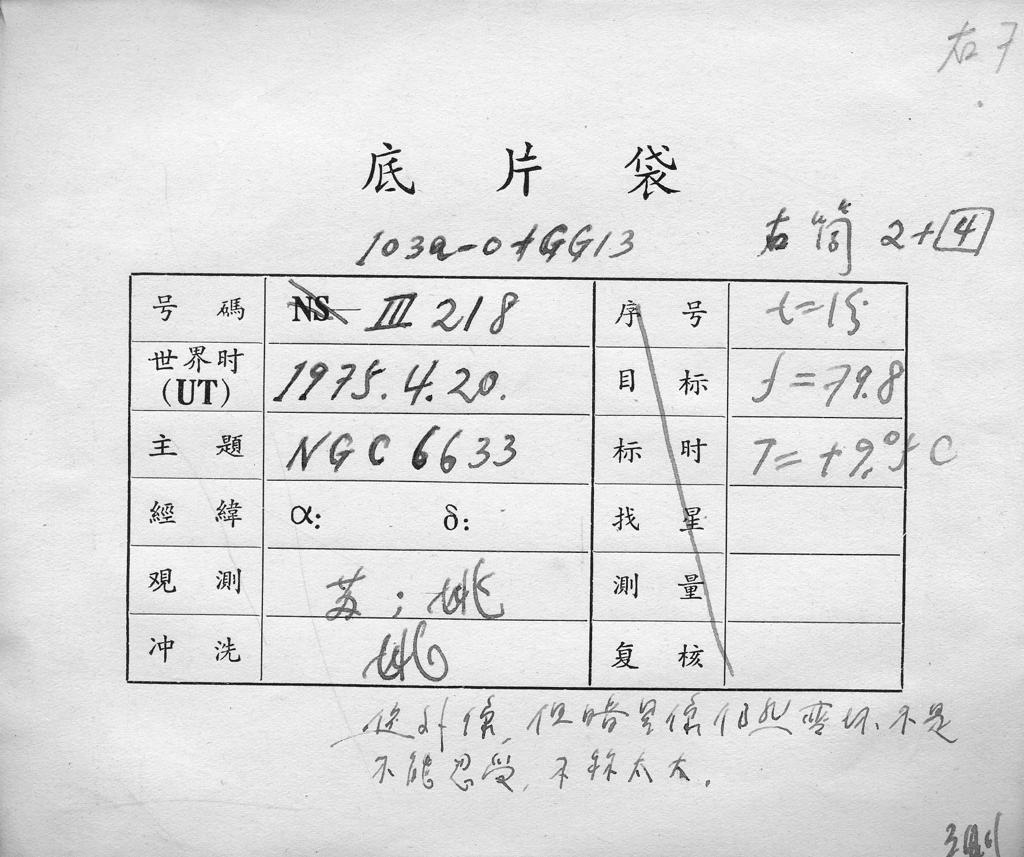 右7
底片袋
103a-0+GG13 右筒 2+4
号碼 NS III 218 序号 t=15
世界时 (UT) 1975.4.20. 目标 f=79.8
主題 NGC 6633 标时 T=+9.°5 C
經緯 α: δ: 找星
观測 苏；姚 測量
冲洗 姚 复核
焦外像,但暗星像仍然变坏.不是
不能忍受,不够太大.